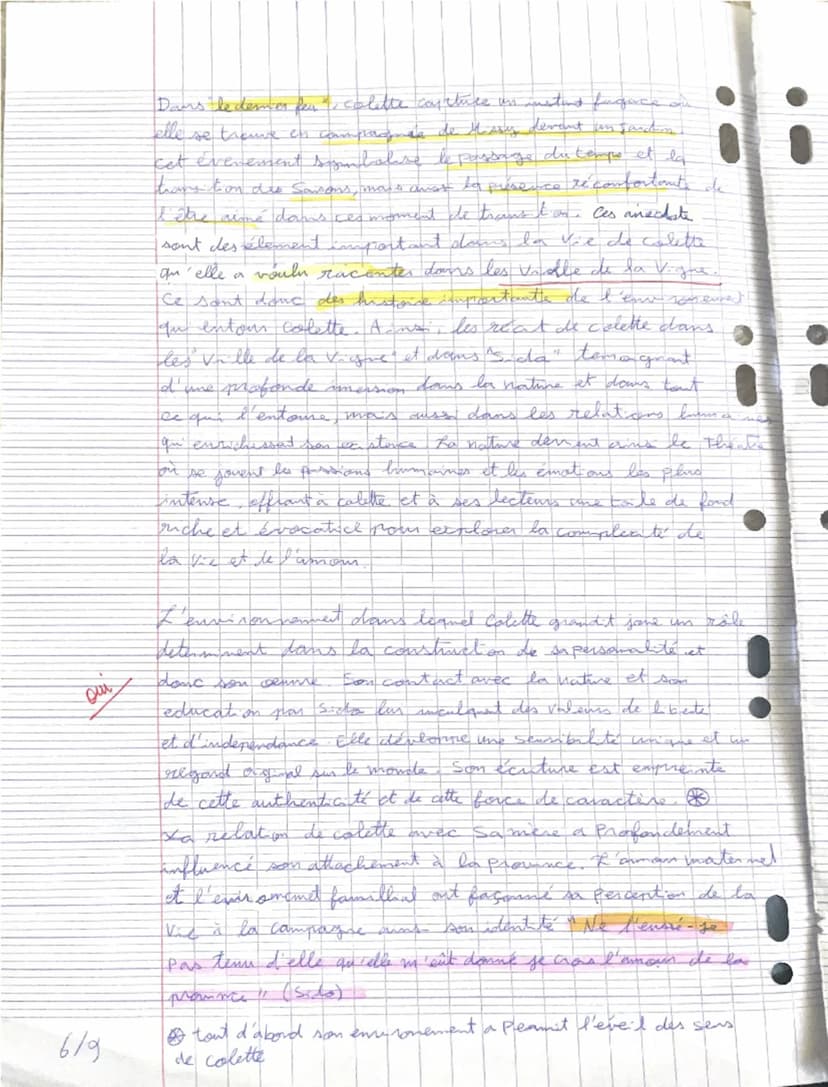 Dans "le dernier feu", colette capture un instant fugace où
elle se trouve en compagnie de Missy devant un Jardin,
cet évenement symbolise le passage du temps et la
transition des Saisons, mais aussi la présence réconfortante de
l'être aimé dans ces moment de transition. Ces anecdote
sont des élément important dans la vie de colette
qu'elle a voulu raconter dans les Vrille de la Vigne.
Ce sont donc des histoire importante de l'environement
qui entour Colette. Ainsi, les récit de colette dans
les "Vrille de la Vigne" et dans "Sida" temoagnent
d'une profonde imersion dans la nature et dans tout
ce qui l'entoure, mais aussi dans les relations humaines
qui enrichessent son existence. La nature devient ainsi le Théatre
où se jouent les passions humaines et les émotions les plus
intense, offrant à colette et à ses lecteurs une toile de fond
riche et évocatrice pour explorer la complexité de
la vie et de l'amour.
L'environnement dans lequel Colette grandit joue un rôle
determinent dans la construction de sa personalité et
donc son oeuvre. Son contact avec la nature et son
education par Sido lui inculquent des valeurs de liberté
et d'independance. Elle développe une sensibilité unique et un
regard original sur le monde. Son écriture est empreinte
de cette authenticité et de cette force de caractère. ⊛
La relation de colette avec Sa mère a Profondement
influencé son attachement à la province. L'amour maternel
et l'environnemet famillial ont façonné sa perception de la
Vie à la campagne ainsi son identité "Ne l'eussé-je
pas tenu d'elle qu'elle m'eût donné je crois l'amour de la
province" (Sido)
oui
⊛ tout d'abord son environement a permit l'éveil des sens
de colette
6/9